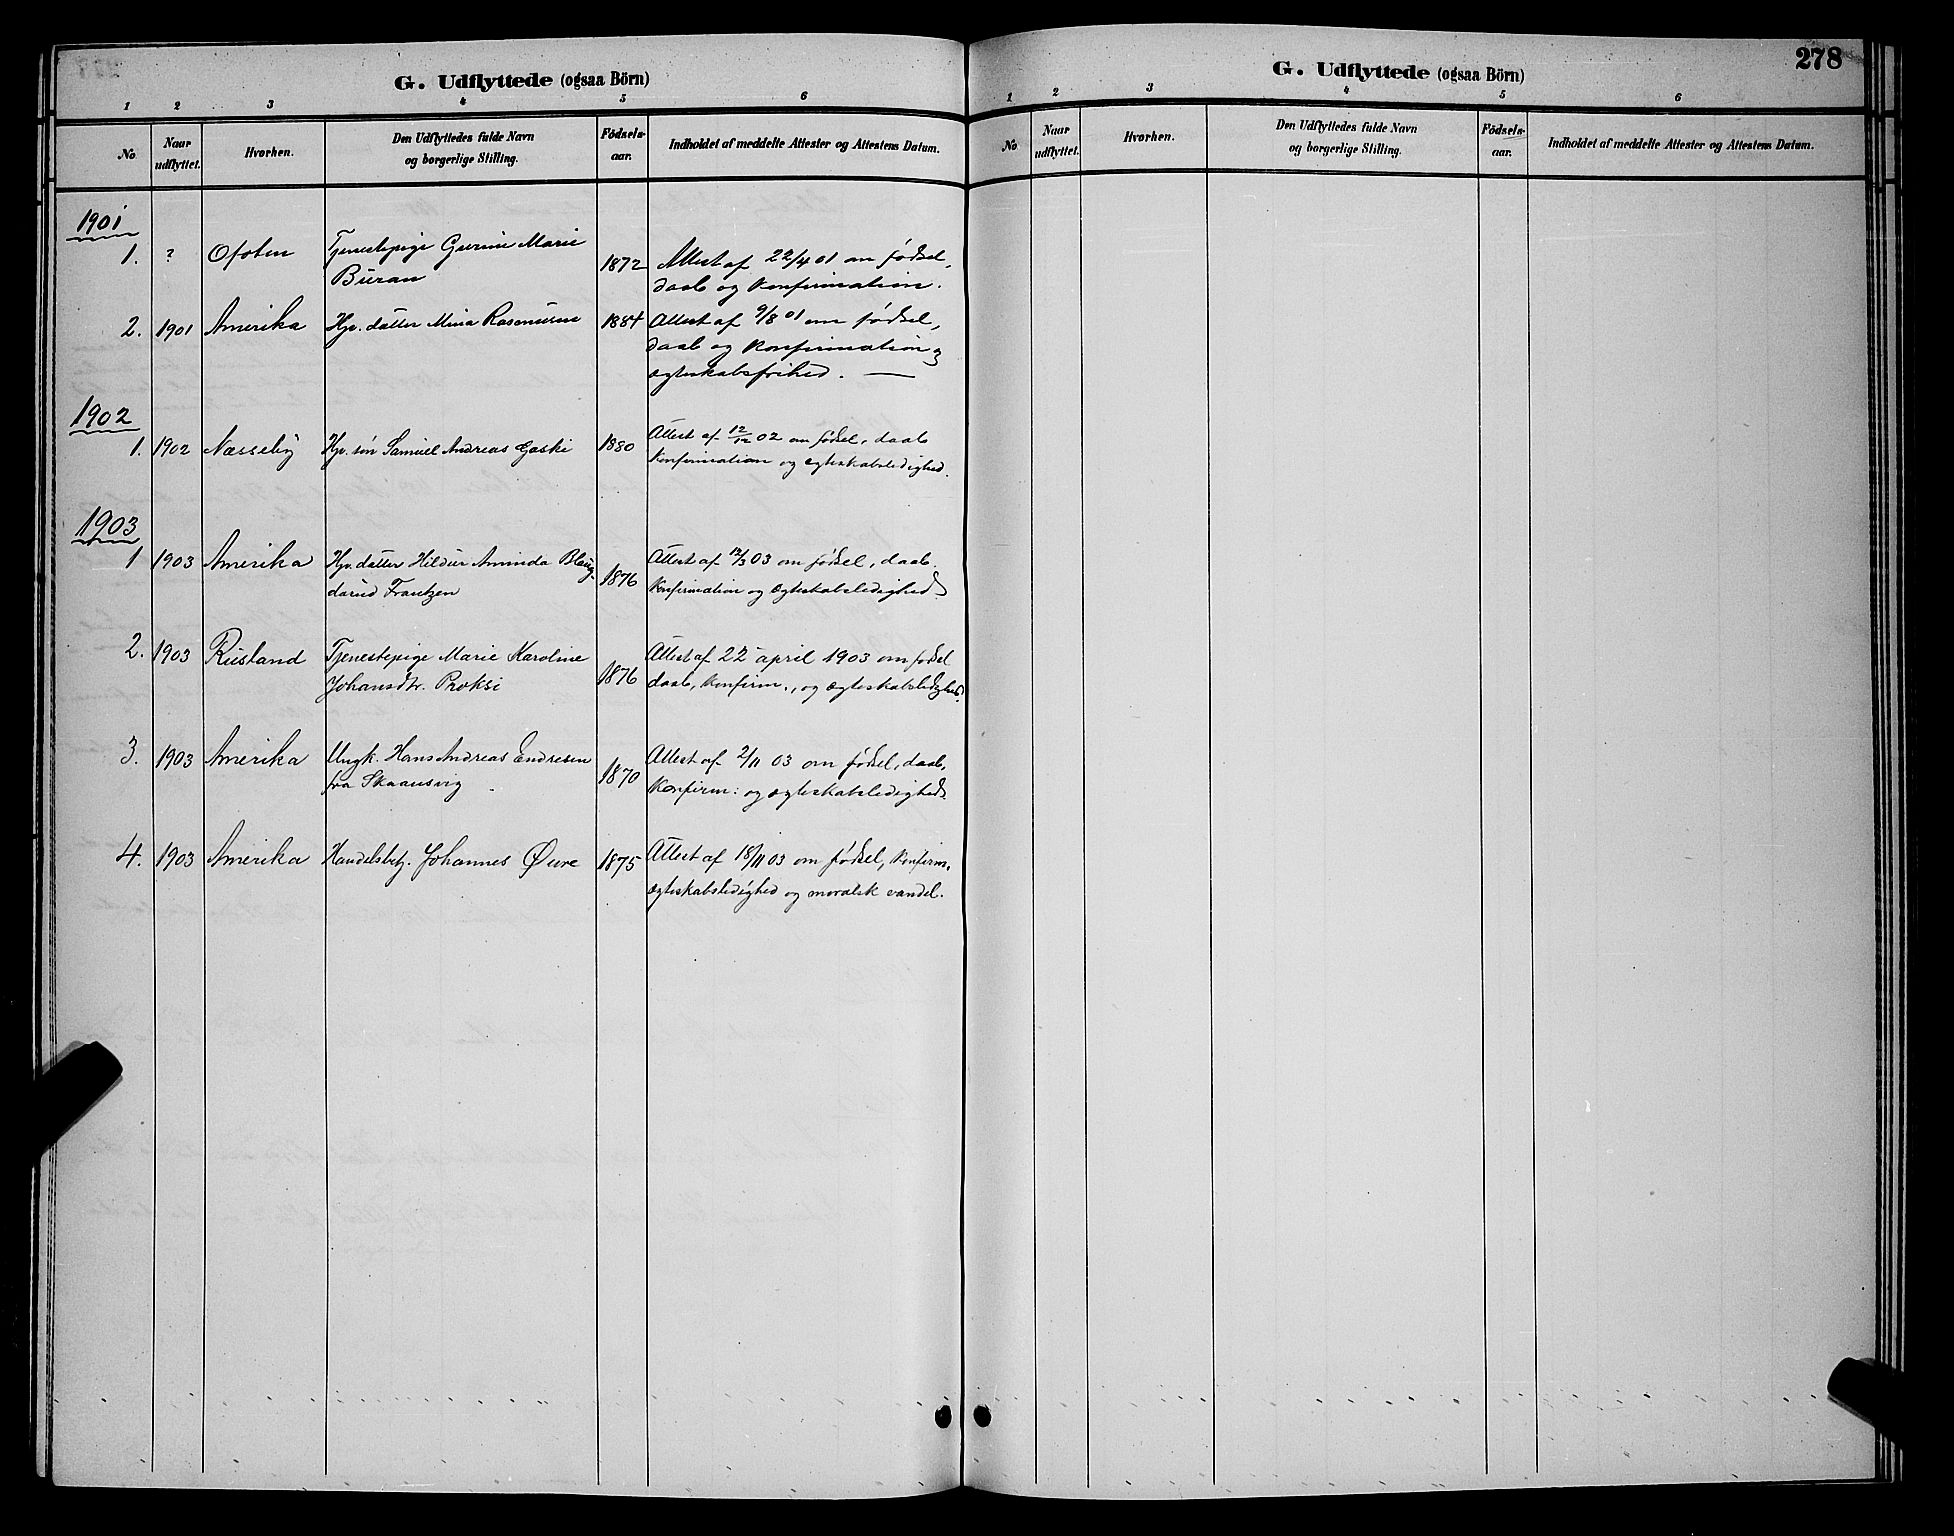 G. Udflyttede (ogsaa Börn)
1 2 3 4 5 6
No. Naar udflyttet. Hvorhen. Den Udflyttedes fulde Navn og borgerlige Stilling. Fødsels-aar. Indholdet af meddelte Attester og Attestens Datum.
1901
1. ? Ofoten Tjenestepige Gurine Marie 1872 Attest af 22/4 01 om fødsel,
Buran daab og konfirmation.
2. 1901 Amerika Hp. datter Mina Rasmusen 1884 Attest af 9/8 01 om fødsel,
daab og konfirmation og
ægteskabsfrihed. —
1902
1. 1902 Næsseby Hp. søn Samuel Andreas Gaski 1880 Attest af 12/12 02 om fødsel, daab
konfirmation og ægteskabsledighed.
1903
1 1903 Amerika Hp. datter Hildur Aminda Blaug- 1876 Attest af 12/3 03 om fødsel, daab.
darud Frantzen konfirmation og ægteskabsledighed
2. 1903 Rusland Tjenestepige Marie Karoline 1876 Attest af 22 april 1903 om fødsel
Johansdtr. Proksi daab, konfirm., og ægteskabsledighed.
3. 1903 Amerika Ungk. Hans Andreas Endresen 1870 Attest af 2/11 03 om fødsel, daab,
fra Skaansvig konfirm: og ægteskabsledighed.
4. 1903 Amerika Handelsbetj. Johannes Øure 1875 Attest af 18/11 03 om fødsel, konfirm.
ægteskabsledighed og moralsk vandel.
278
G. Udflyttede (ogsaa Börn)
1 2 3 4 5 6
No Naar udflyttet. Hvorhen. Den Udflyttedes fulde Navn og borgerlige Stilling. Fødsels-aar. Indholdet af meddelte Attester og Attestens Datum.